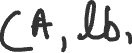 CA, lb.